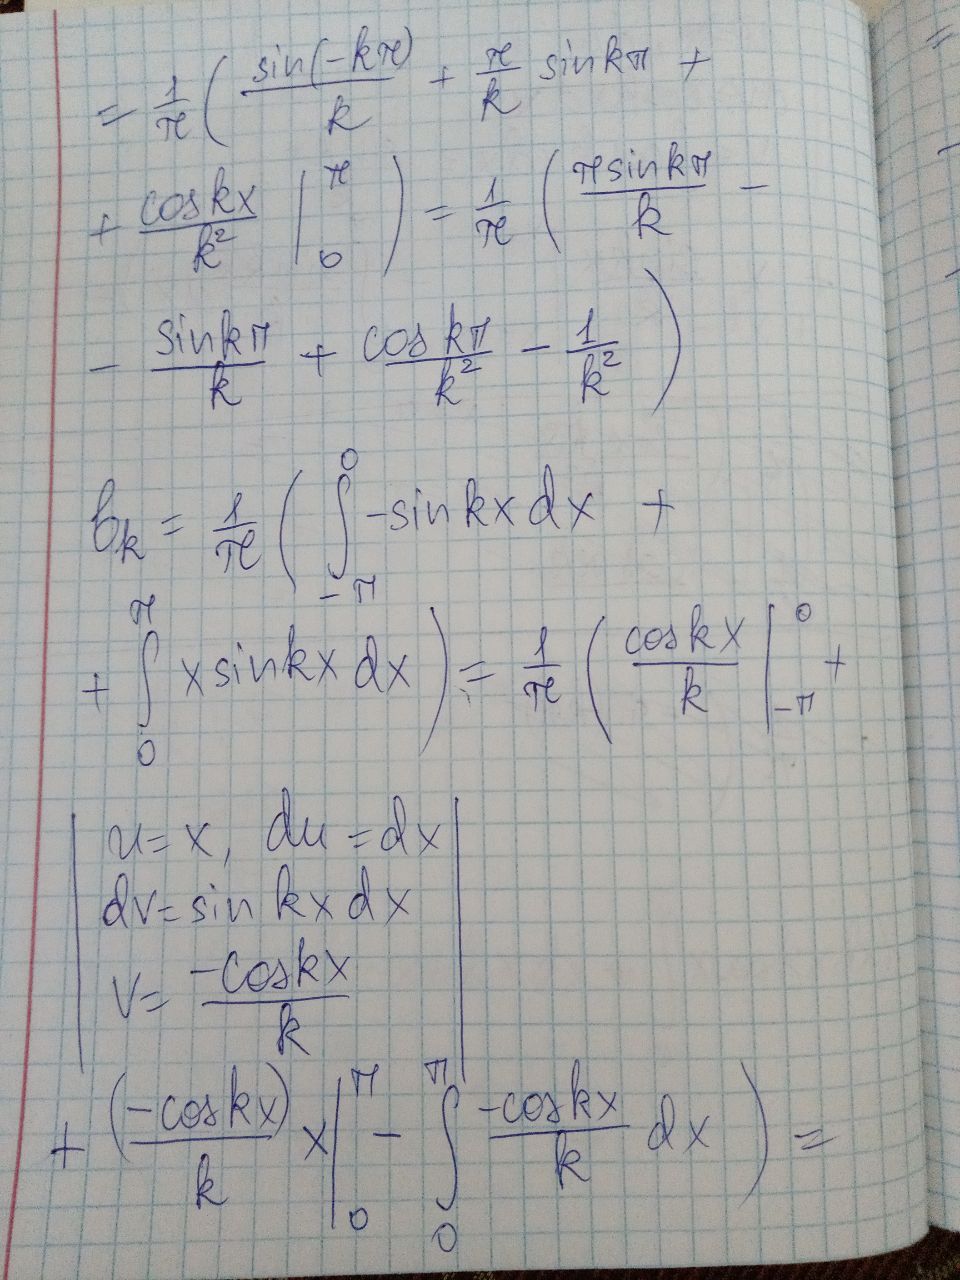 = 1/π ( sin(-kπ)/k + π/k sin kπ +
+ cos kx/k² |₀^π ) = 1/π ( π sin kπ/k -
- sin kπ/k + cos kπ/k² - 1/k² )
b_k = 1/π ( ∫_{-π}^0 -sin kx dx +
+ ∫_0^π x sin kx dx ) = 1/π ( cos kx/k |_{-π}^0 +
| u = x, du = dx |
dv = sin kx dx
v = -cos kx/k
+ (-cos kx)/k x |_0^π - ∫_0^π -cos kx/k dx ) =